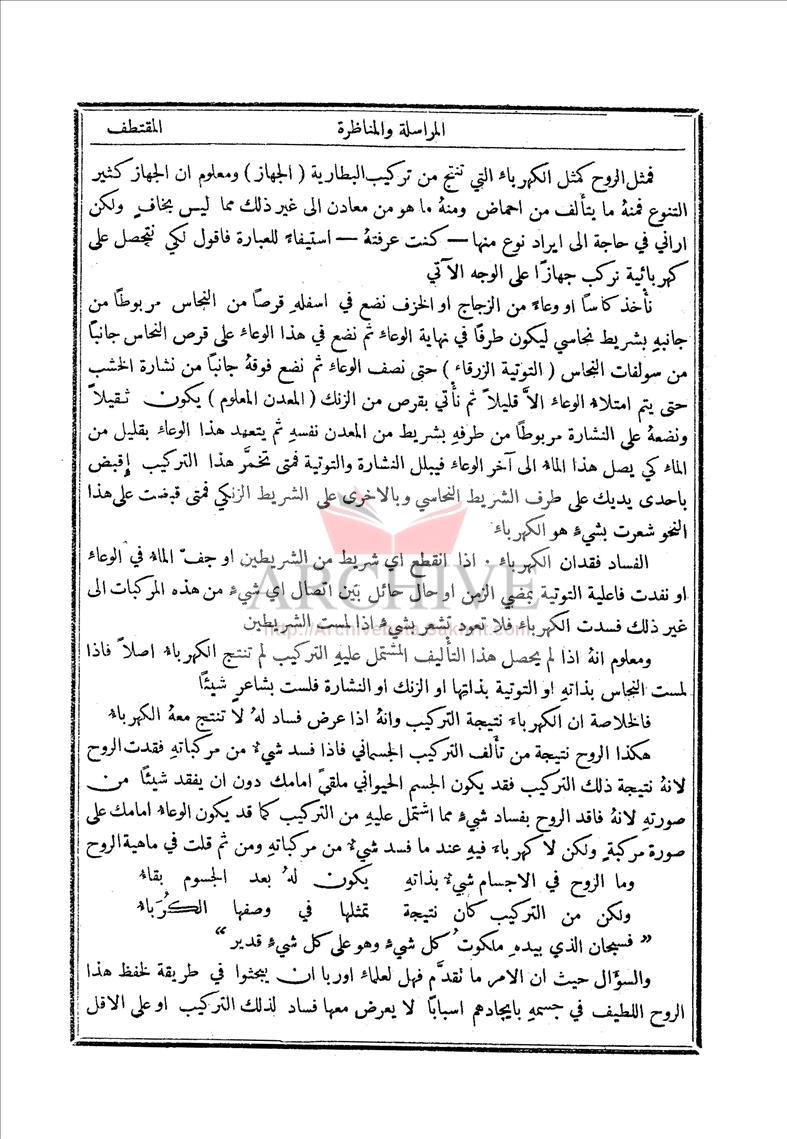 المراسلة والمناظرة
المقتطف
فمثل الروح كمثل الكهرباء التي تنتج من تركيب البطارية ( الجهاز ) ومعلوم ان الجهاز كثير
التنوع فمنهُ ما يتألف من احماض ومنهُ ما هو من معادن الى غير ذلك مما ليس بخافٍ ولكن
اراني في حاجة الى ايراد نوع منها — كنت عرفتهُ — استيفاءً للعبارة فاقول لكي نتحصل على
كهربائية نركب جهازًا على الوجه الآتي
نأخذ كاسًا او وعاءً من الزجاج او الخزف نضع في اسفلهِ قرصًا من النحاس مربوطًا من
جانبهِ بشريط نحاسي ليكون طرفًا في نهاية الوعاء ثم نضع في هذا الوعاء على قرص النحاس جانبًا
من سولفات النحاس ( التوتية الزرقاء ) حتى نصف الوعاء ثم نضع فوقهُ جانبًا من نشارة الخشب
حتى يتم امتلاء الوعاء الاَّ قليلاً ثم نأتي بقرص من الزنك ( المعدن المعلوم ) يكون ثقيلاً
ونضعهُ على النشارة مربوطًا من طرفهِ بشريط من المعدن نفسهِ ثم يتعهد هذا الوعاء بقليل من
الماء كي يصل هذا الماء الى آخر الوعاء فيبلل النشارة والتوتية فمتى تخمَّر هذا التركيب إقبض
باحدى يديك على طرف الشريط النحاسي وبالاخرى على الشريط الزنكي فمتى قبضت على هذا
النحو شعرت بشيءٍ هو الكهرباء
الفساد فقدان الكهرباء . اذا انقطع اي شريط من الشريطين او جفّ الماء في الوعاء
او نفدت فاعلية التوتية بمضي الزمن او حال حائل بَين اتصال اي شيءٍ من هذه المركبات الى
غير ذلك فسدت الكهرباء فلا تعود تشعر بشيءٍ اذا لمست الشريطين
ومعلوم انهُ اذا لم يحصل هذا التأليف المشتمل عليهِ التركيب لم تنتج الكهرباء اصلاً فاذا
لمست النحاس بذاتهِ او التوتية بذاتها او الزنك او النشارة فلست بشاعرٍ شيئًا
فالخلاصة ان الكهرباء نتيجة التركيب وانهُ اذا عرض فساد لهُ لا تنتج معهُ الكهرباء
هكذا الروح نتيجة من تألف التركيب الجسماني فاذا فسد شيءٌ من مركباتهِ فقدت الروح
لانهُ نتيجة ذلك التركيب فقد يكون الجسم الحيواني ملقىً امامك دون ان يفقد شيئًا من
صورتهِ لانهُ فاقد الروح بفساد شيءٍ مما اشتمل عليهِ من التركيب كما قد يكون الوعاء امامك على
صورة مركبةٍ ولكن لا كهرباء فيهِ عند ما فسد شيءٌ من مركباتهِ ومن ثم قلت في ماهية الروح
وما الروح في الاجسام شيءٌ بذاتهِ يكون لهُ بعد الجسوم بقاء
ولكن من التركيب كان نتيجة تمثلها في وصفها الكُرَباء
“ فسبحان الذي بيدهِ ملكوتُ كل شيءٍ وهو على كل شيءٍ قدير ”
والسؤال حيث ان الامر ما نقدَّم فهل لعلماء اوربا ان يبحثوا في طريقة لحفظ هذا
الروح اللطيف في جسمهِ بايجادهم اسبابًا لا يعرض معها فساد لذلك التركيب او على الاقل
ARCHIVE